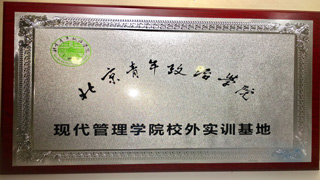 北京青年政治学院
现代管理学院校外实训基地